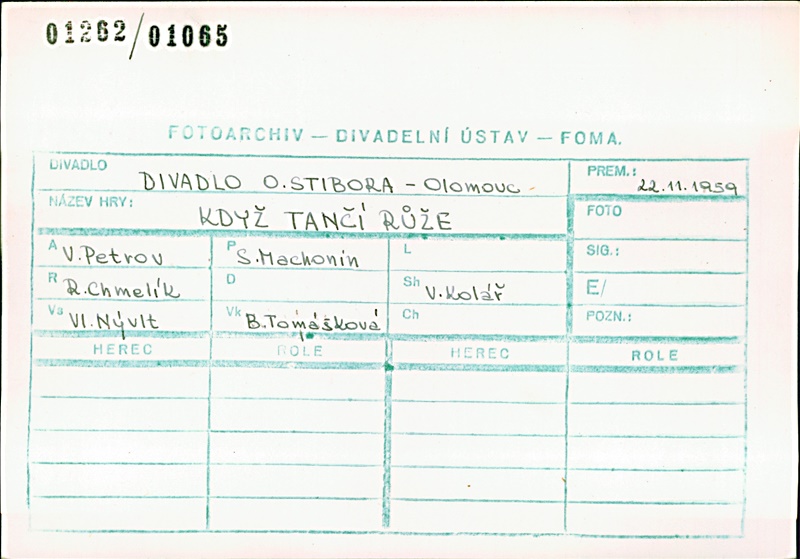 01262/01065
FOTOARCHIV — DIVADELNÍ ÚSTAV — FOMA.
DIVADLO DIVADLO O.STIBORA - Olomouc PREM.: 22.11.1959
NÁZEV HRY: KDYŽ TANČÍ RŮŽE FOTO
A V.Petrov P S.Machonin L SIG.:
R R.Chmelík D Sh V.Kolář E/
Va Vl.Nývlt Vk B.Tomášková Ch POZN.:
HEREC ROLE HEREC ROLE